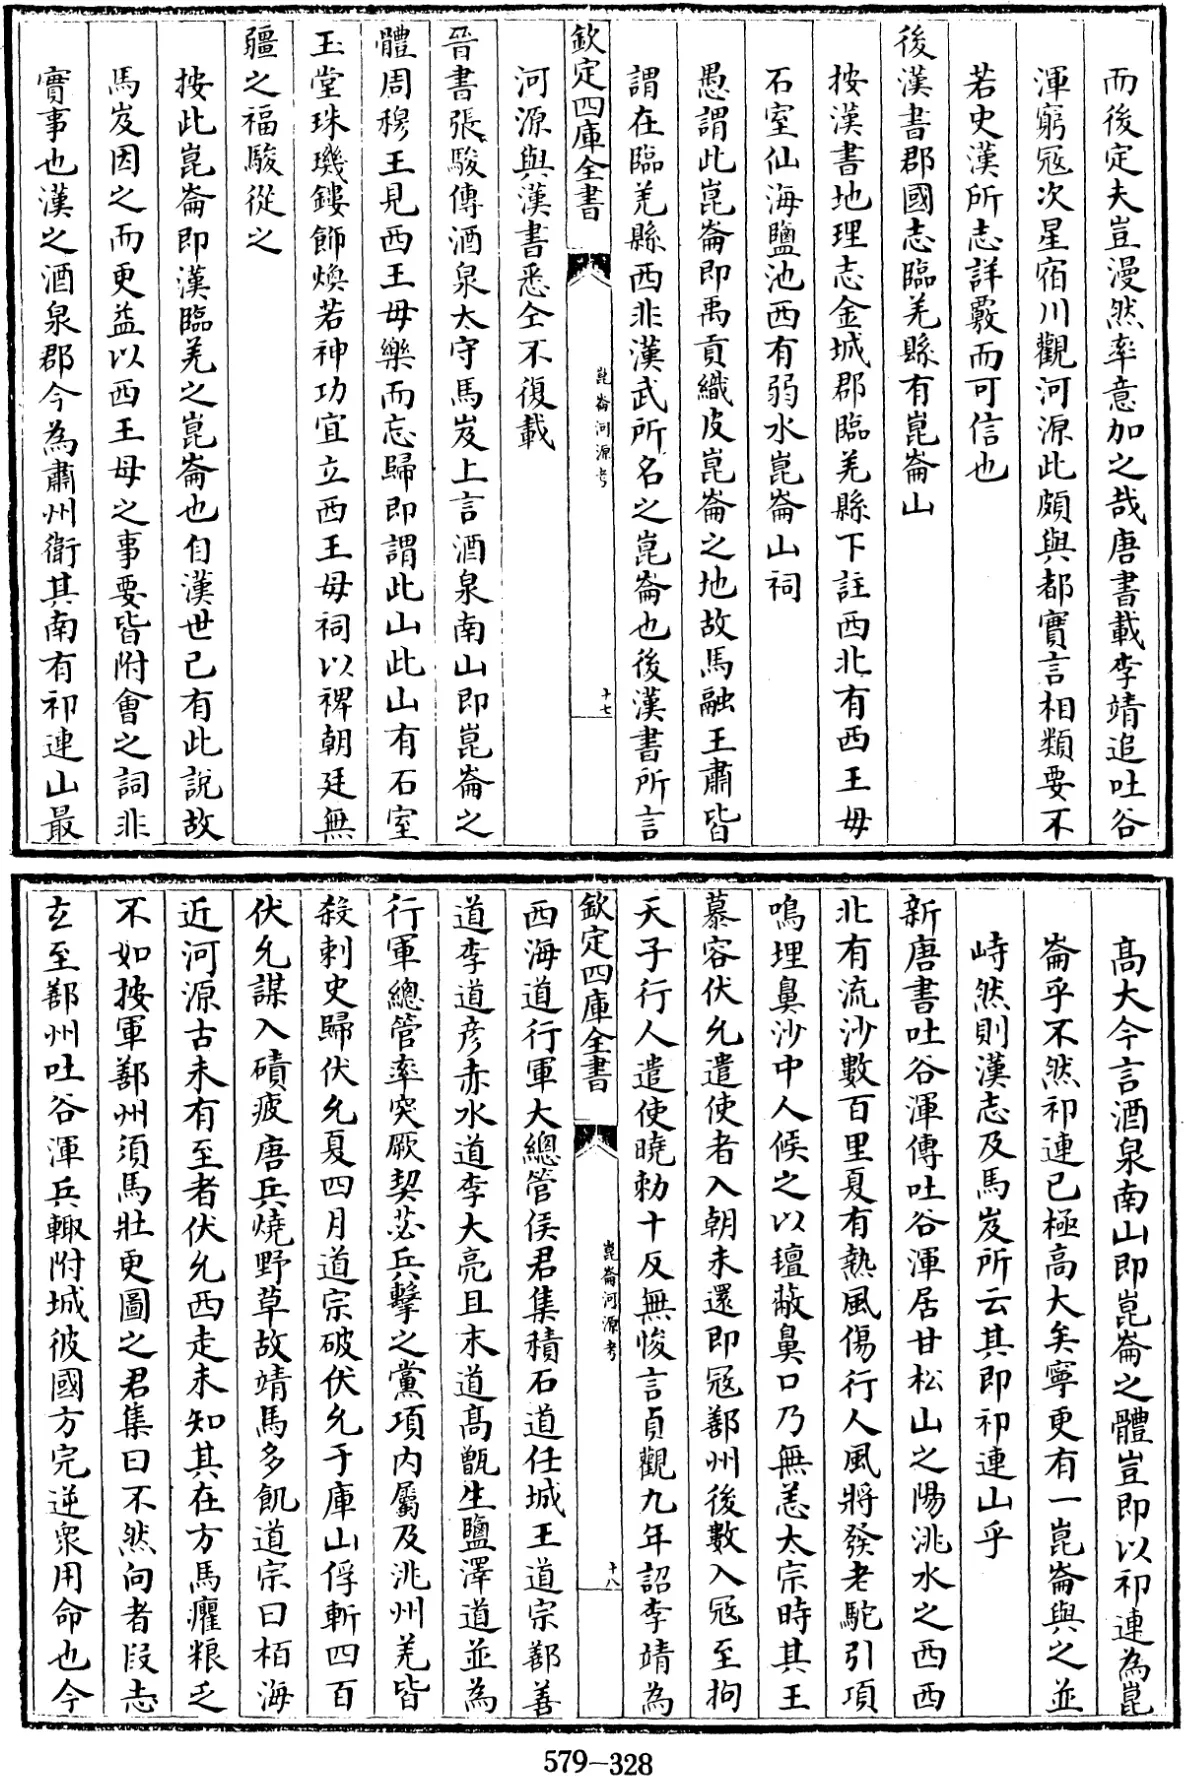 而後定夫豈漫然率意加之哉唐書載李靖追吐谷
渾窮冦次星宿川觀河源此頗與都實言相類要不
若史漢所志詳覈而可信也
後漢書郡國志臨羌縣有崑崙山
按漢書地理志金城郡臨羌縣下註西北有西王母
石室仙海鹽池西有弱水崑崙山祠
愚謂此崑崙即禹貢織皮崑崙之地故馬融王肅皆
謂在臨羌縣西非漢武所名之崑崙也後漢書所言
欽定四庫全書
崑崙河源考
十七
河源與漢書悉仝不復載
晉書張駿傳酒泉太守馬岌上言酒泉南山即崑崙之
體周穆王見西王母樂而忘歸即謂此山此山有石室
玉堂珠璣鏤飾煥若神功宜立西王母祠以裨朝廷無
疆之福駿從之
按此崑崙即漢臨羌之崑崙也自漢世已有此說故
馬岌因之而更益以西王母之事要皆附會之詞非
實事也漢之酒泉郡今為肅州衛其南有祁連山最
高大今言酒泉南山即崑崙之體豈即以祁連為崑
崙乎不然祁連已極高大矣寧更有一崑崙與之並
峙然則漢志及馬岌所云其即祁連山乎
新唐書吐谷渾傳吐谷渾居甘松山之陽洮水之西西
北有流沙數百里夏有熱風傷行人風將發老駝引項
鳴埋鼻沙中人候之以氊蔽鼻口乃無恙太宗時其王
慕容伏允遣使者入朝未還即冦鄯州後數入冦至拘
天子行人遣使曉勅十反無悛言貞觀九年詔李靖為
欽定四庫全書
崑崙河源考
十八
西海道行軍大總管侯君集積石道任城王道宗鄯善
道李道彥赤水道李大亮且末道高甑生鹽澤道並為
行軍總管率突厥契苾兵擊之黨項內屬及洮州羌皆
殺刺史歸伏允夏四月道宗破伏允于庫山俘斬四百
伏允謀入磧疲唐兵燒野草故靖馬多飢道宗曰栢海
近河源古未有至者伏允西走未知其在方馬癯粮乏
不如按軍鄯州須馬壯更圖之君集曰不然向者段志
玄至鄯州吐谷渾兵輙附城彼國方完逆衆用命也今
579-328